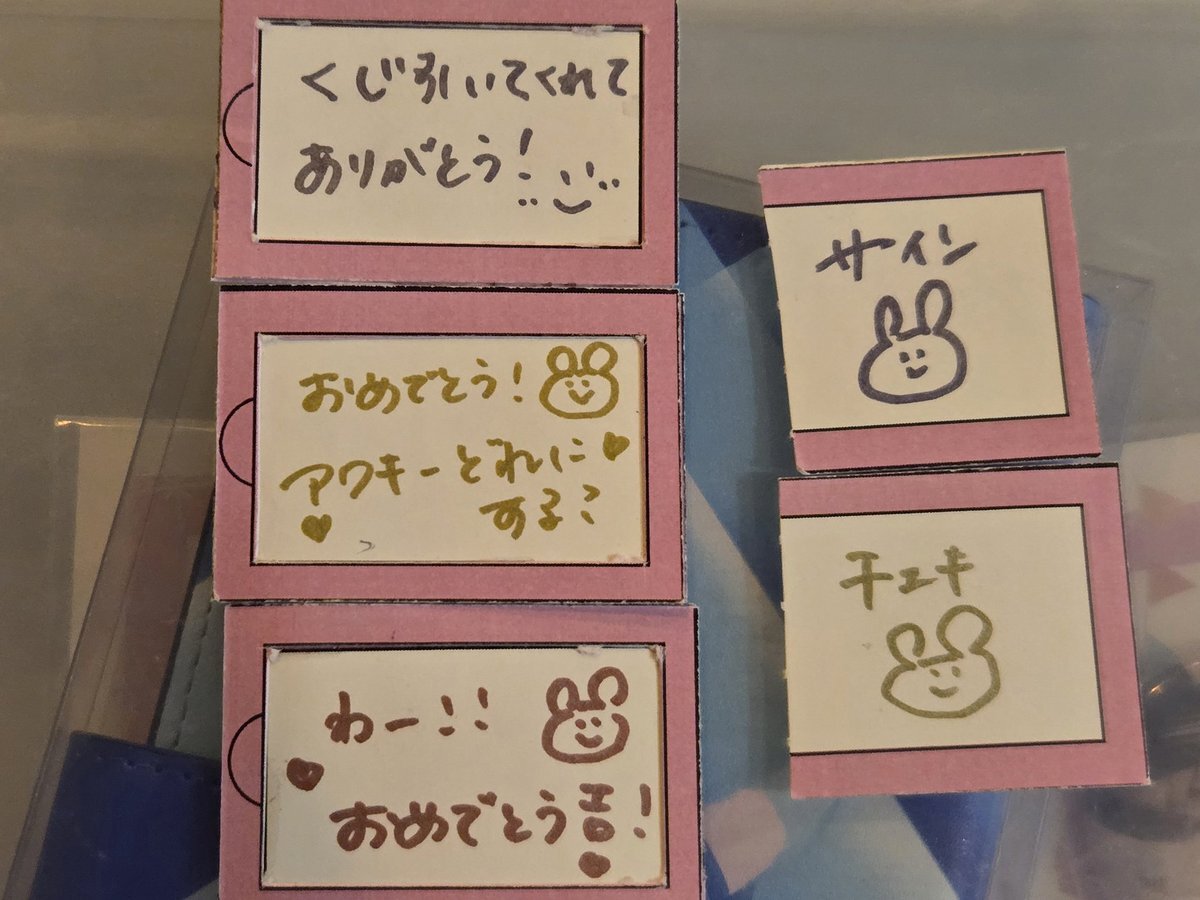 くじ引いてくれて
ありがとう!
おめでとう!
アクキーどれに
する?
わー!!
おめでとう!
サイン
チェキ